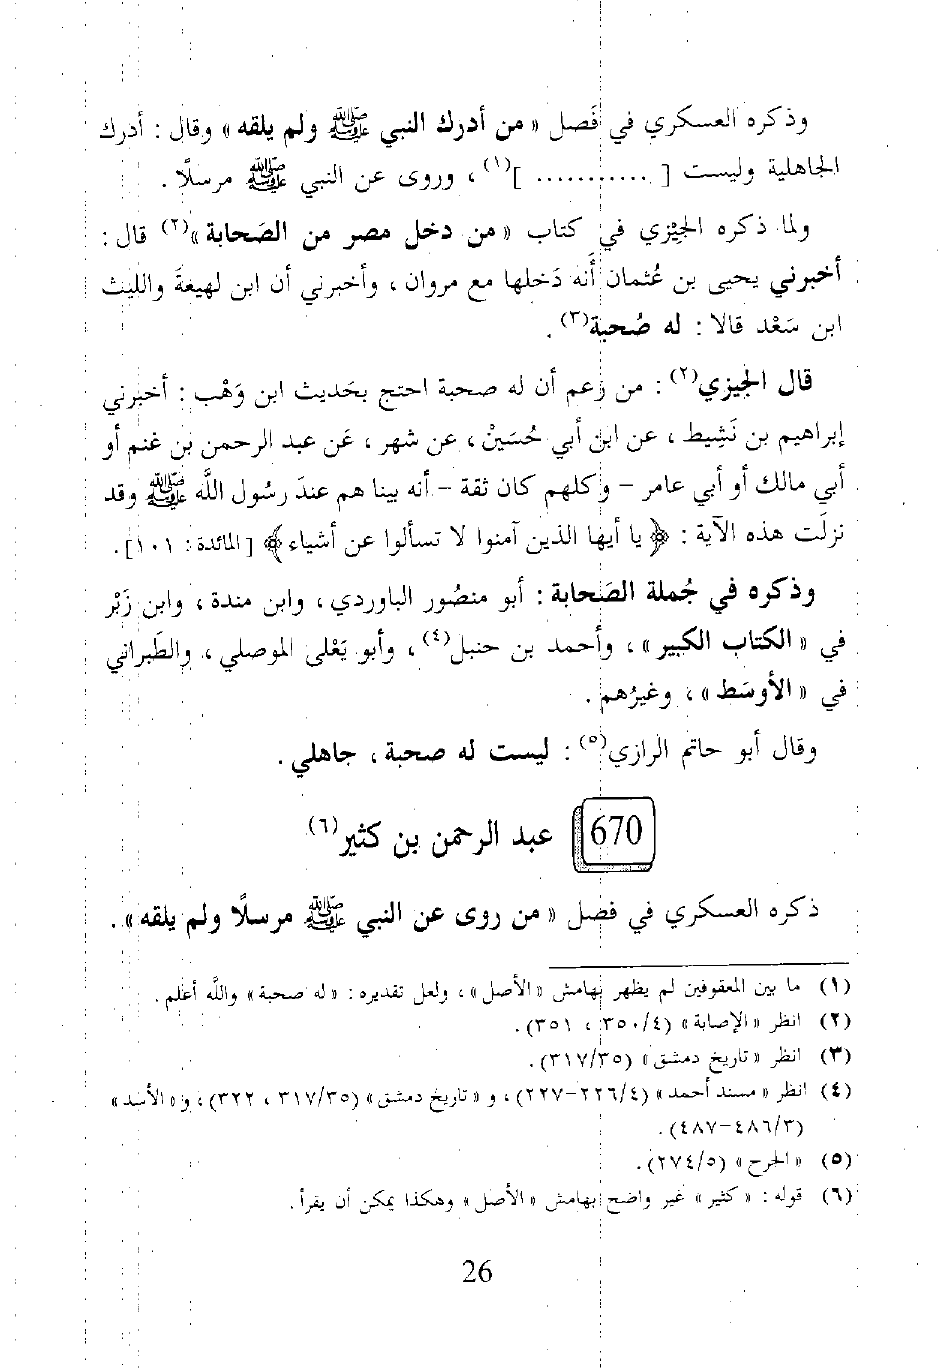 وذكره العسكري في فَصل « من أدرك النبي ﷺ ولم يلقه » وقال : أدرك
الجاهلية وليست [ ........... ](١) ، وروى عن النبي ﷺ مرسلًا .
ولما ذكره الجِيْزي في كتاب « من دخل مصر من الصَحابة »(٢) قال :
أخبرني يحيى بن عُثمان أَنه دَخلها مع مروان ، وأخبرني أن ابن لهيعةَ والليث
ابن سَعْد قالا : له صُحبة(٣) .
قال الجيزي(٢) : من زعم أن له صحبة احتج بحَديث ابن وَهْب : أخبرني
إبراهيم بن نَشِيط ، عن ابن أبي حُسَيْن ، عن شهر ، عَن عبد الرحمن بن غنم أو
أبي مالك أو أبي عامر – وكلهم كان ثقة – أنه بينا هم عندَ رسُول الله ﷺ وقد
نزلَت هذه الآية : ﴿ يا أيها الذين آمنوا لا تسألوا عن أشياء ﴾ [ المائدة : ١٠١].
وذكره في جُملة الصَحابة : أبو منصُور الباوردي ، وابن مندة ، وابن زَبْر
في « الكتاب الكبير » ، وأحمد بن حنبل(٤) ، وأبو يَعْلى الموصلي ، والطَبراني
في « الأوسَط » ، وغيرُهم .
وقال أبو حاتم الرازي(٥) : ليست له صحبة ، جاهلي .
670 عبد الرحمن بن كثير(٦)
ذكره العسكري في فصل « من روى عن النبي ﷺ مرسلًا ولم يلقه » .
(١) ما بين المعقوفين لم يظهر بهامش « الأصل » ، ولعل تقديره : « له صحبة » واللَّه أعلم .
(٢) انظر « الإصابة » (٣٥٠/٤ ، ٣٥١).
(٣) انظر « تاريخ دمشق » (٣١٧/٣٥).
(٤) انظر « مسند أحمد » (٢٢٦/٤–٢٢٧) ، و « تاريخ دمشق » (٣١٧/٣٥ ، ٣٢٢) ، و« الأسد »
(٤٨٦/٣–٤٨٧) .
(٥) « الجرح » (٢٧٤/٥).
(٦) قوله : « كثير » غير واضح بهامش « الأصل » وهكذا يمكن أن يقرأ .
26